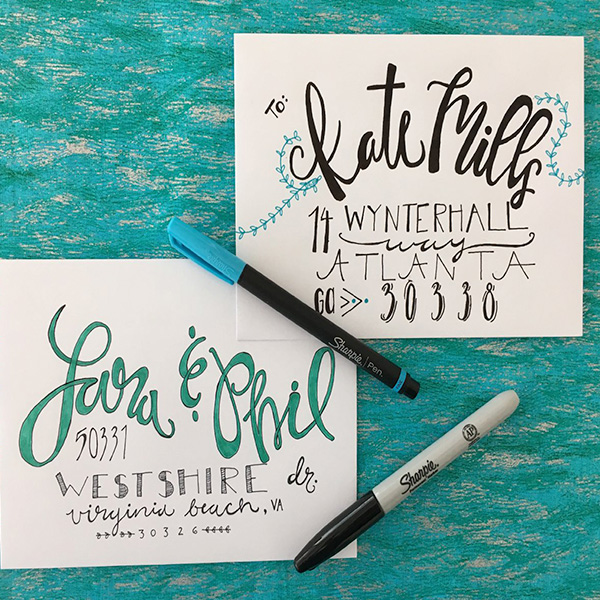 TO:
Kate Mills
14 WYNTERHALL
way
ATLANTA
GA 30338
Sharpie. Pen.
Lara & Phil
50331
WESTSHIRE dr.
virginia beach, VA
30326
Sharpie.
AP